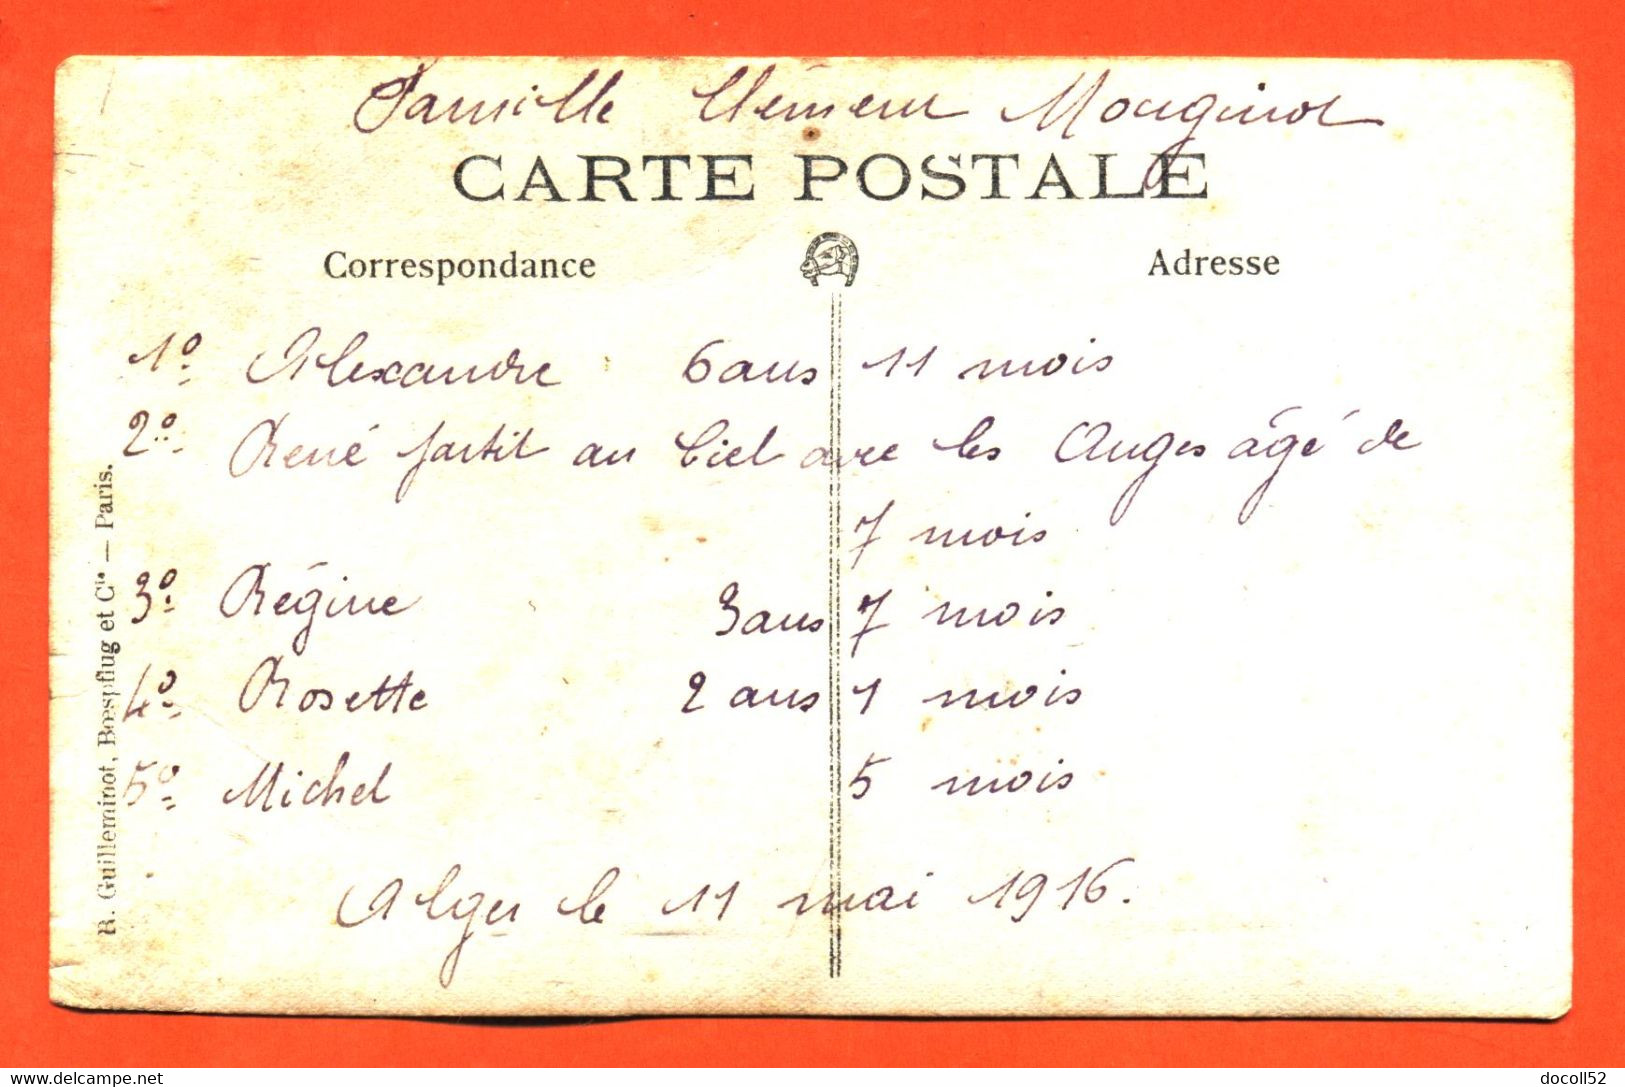 Famille Clément Mouginot
CARTE POSTALE
Correspondance Adresse
1º Alexandre 6 ans 11 mois
2º René partit au Ciel avec les Anges âgé de
7 mois
3º Régine 3 ans 7 mois
4º Rosette 2 ans 1 mois
5º Michel 5 mois
Alger le 11 mai 1916.
R. Guilleminot, Bœspflug et Cie — Paris.
delcampe.net
docoll52